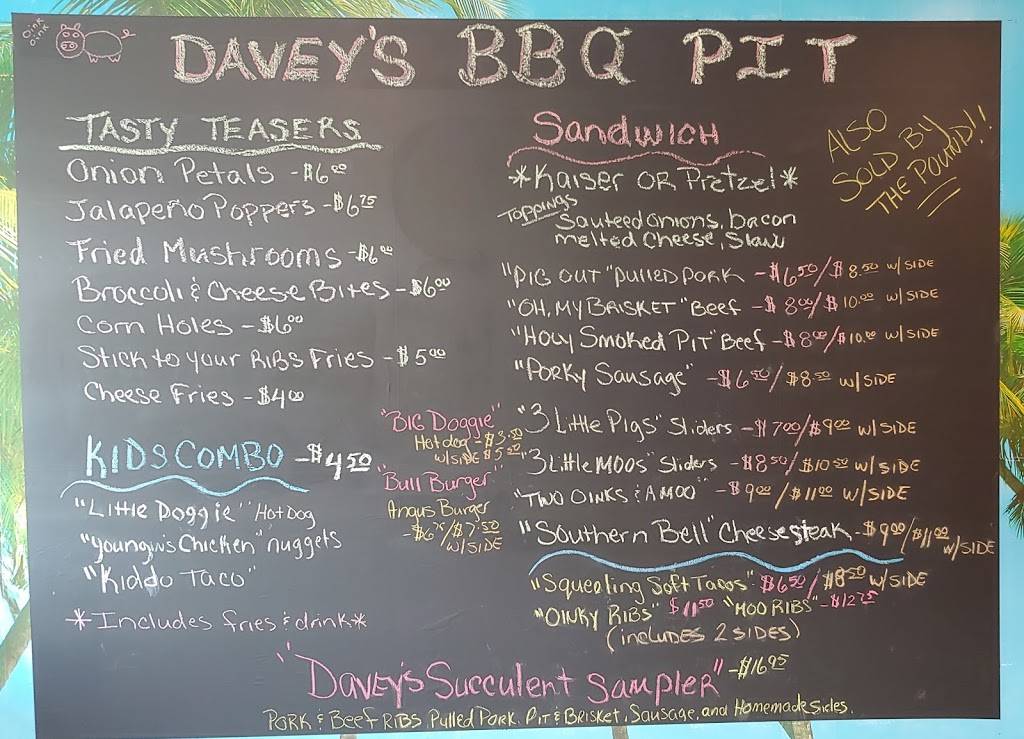 OINK
OINK
DAVEY'S BBQ PIT
TASTY TEASERS
Onion Petals - $6.00
Jalapeño Poppers - $6.75
Fried Mushrooms - $6.00
Broccoli & Cheese Bites - $6.00
Corn Holes - $6.00
Stick to your Ribs Fries - $5.00
Cheese Fries - $4.00
KIDS COMBO - $4.50
"Little Doggie" Hot Dog
"Youngin's Chicken" nuggets
"Kiddo Taco"
*Includes fries & drink*
"BIG Doggie"
Hot dog - $3.50
w/SIDE $5.50
"Bull Burger"
Angus Burger
- $6.75/$7.50
w/SIDE
Sandwich
*Kaiser OR Pretzel*
Toppings
Sauteed onions, Bacon
melted Cheese, Slaw
ALSO
SOLD BY
THE POUND!!
"PIG OUT" Pulled PORK - $6.50/$8.50 w/SIDE
"OH, MY BRISKET" Beef - $8.00/$10.00 w/SIDE
"HOLY Smoked PIT" Beef - $8.00/$10.00 w/SIDE
"PORKY Sausage" - $6.50/$8.50 w/SIDE
"3 Little Pigs" Sliders - $7.00/$9.00 w/SIDE
"3 Little MOOS" Sliders - $8.50/$10.50 w/SIDE
"TWO OINKS & A MOO" - $9.00/$11.00 w/SIDE
"Southern Bell" Cheesesteak - $9.00/$11.00 w/SIDE
"Squealing Soft Tacos" $6.50/$8.50 w/SIDE
"OINKY RIBS" $11.50 "MOO RIBS" - $12.75
(includes 2 SIDES)
"Davey's Succulent Sampler" - $16.95
PORK & Beef RIBS, Pulled Pork, Pit & Brisket, Sausage, and Homemade Sides.